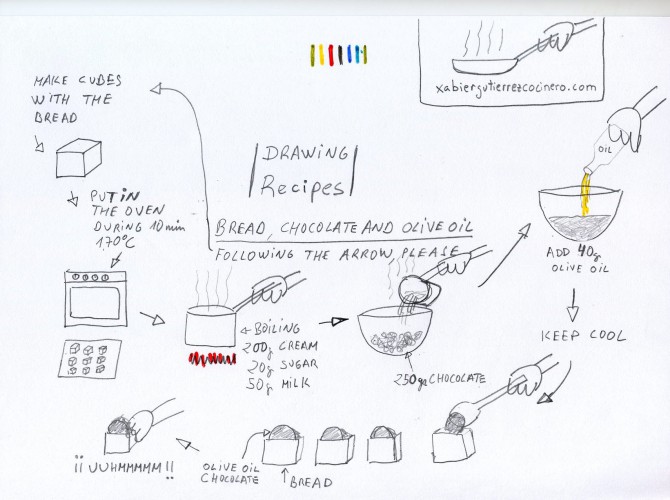 xabiergutierrezcocinero.com
DRAWING
Recipes
BREAD, CHOCOLATE AND OLIVE OIL
FOLLOWING THE ARROW, PLEASE
MAKE CUBES
WITH THE
BREAD
PUT IN
THE OVEN
DURING 10 min
170ºC
BOILING
200g CREAM
20g SUGAR
50g MILK
250g CHOCOLATE
OIL
ADD 40g
OLIVE OIL
KEEP COOL
OLIVE OIL
CHOCOLATE
BREAD
¡¡UUHMMMMM!!